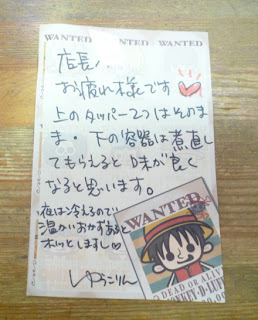 WANTED WANTED WANTED
店長、
お疲れ様です
上のタッパー2つはそのま
ま・下の容器は煮直し
てもらえると味が良く
なると思います。
夜は冷えるので
温かいおかずあると
ホッとしますし
ゆうこりん
WANTED
DEAD OR ALIVE
MONKEY・D・LUFFY